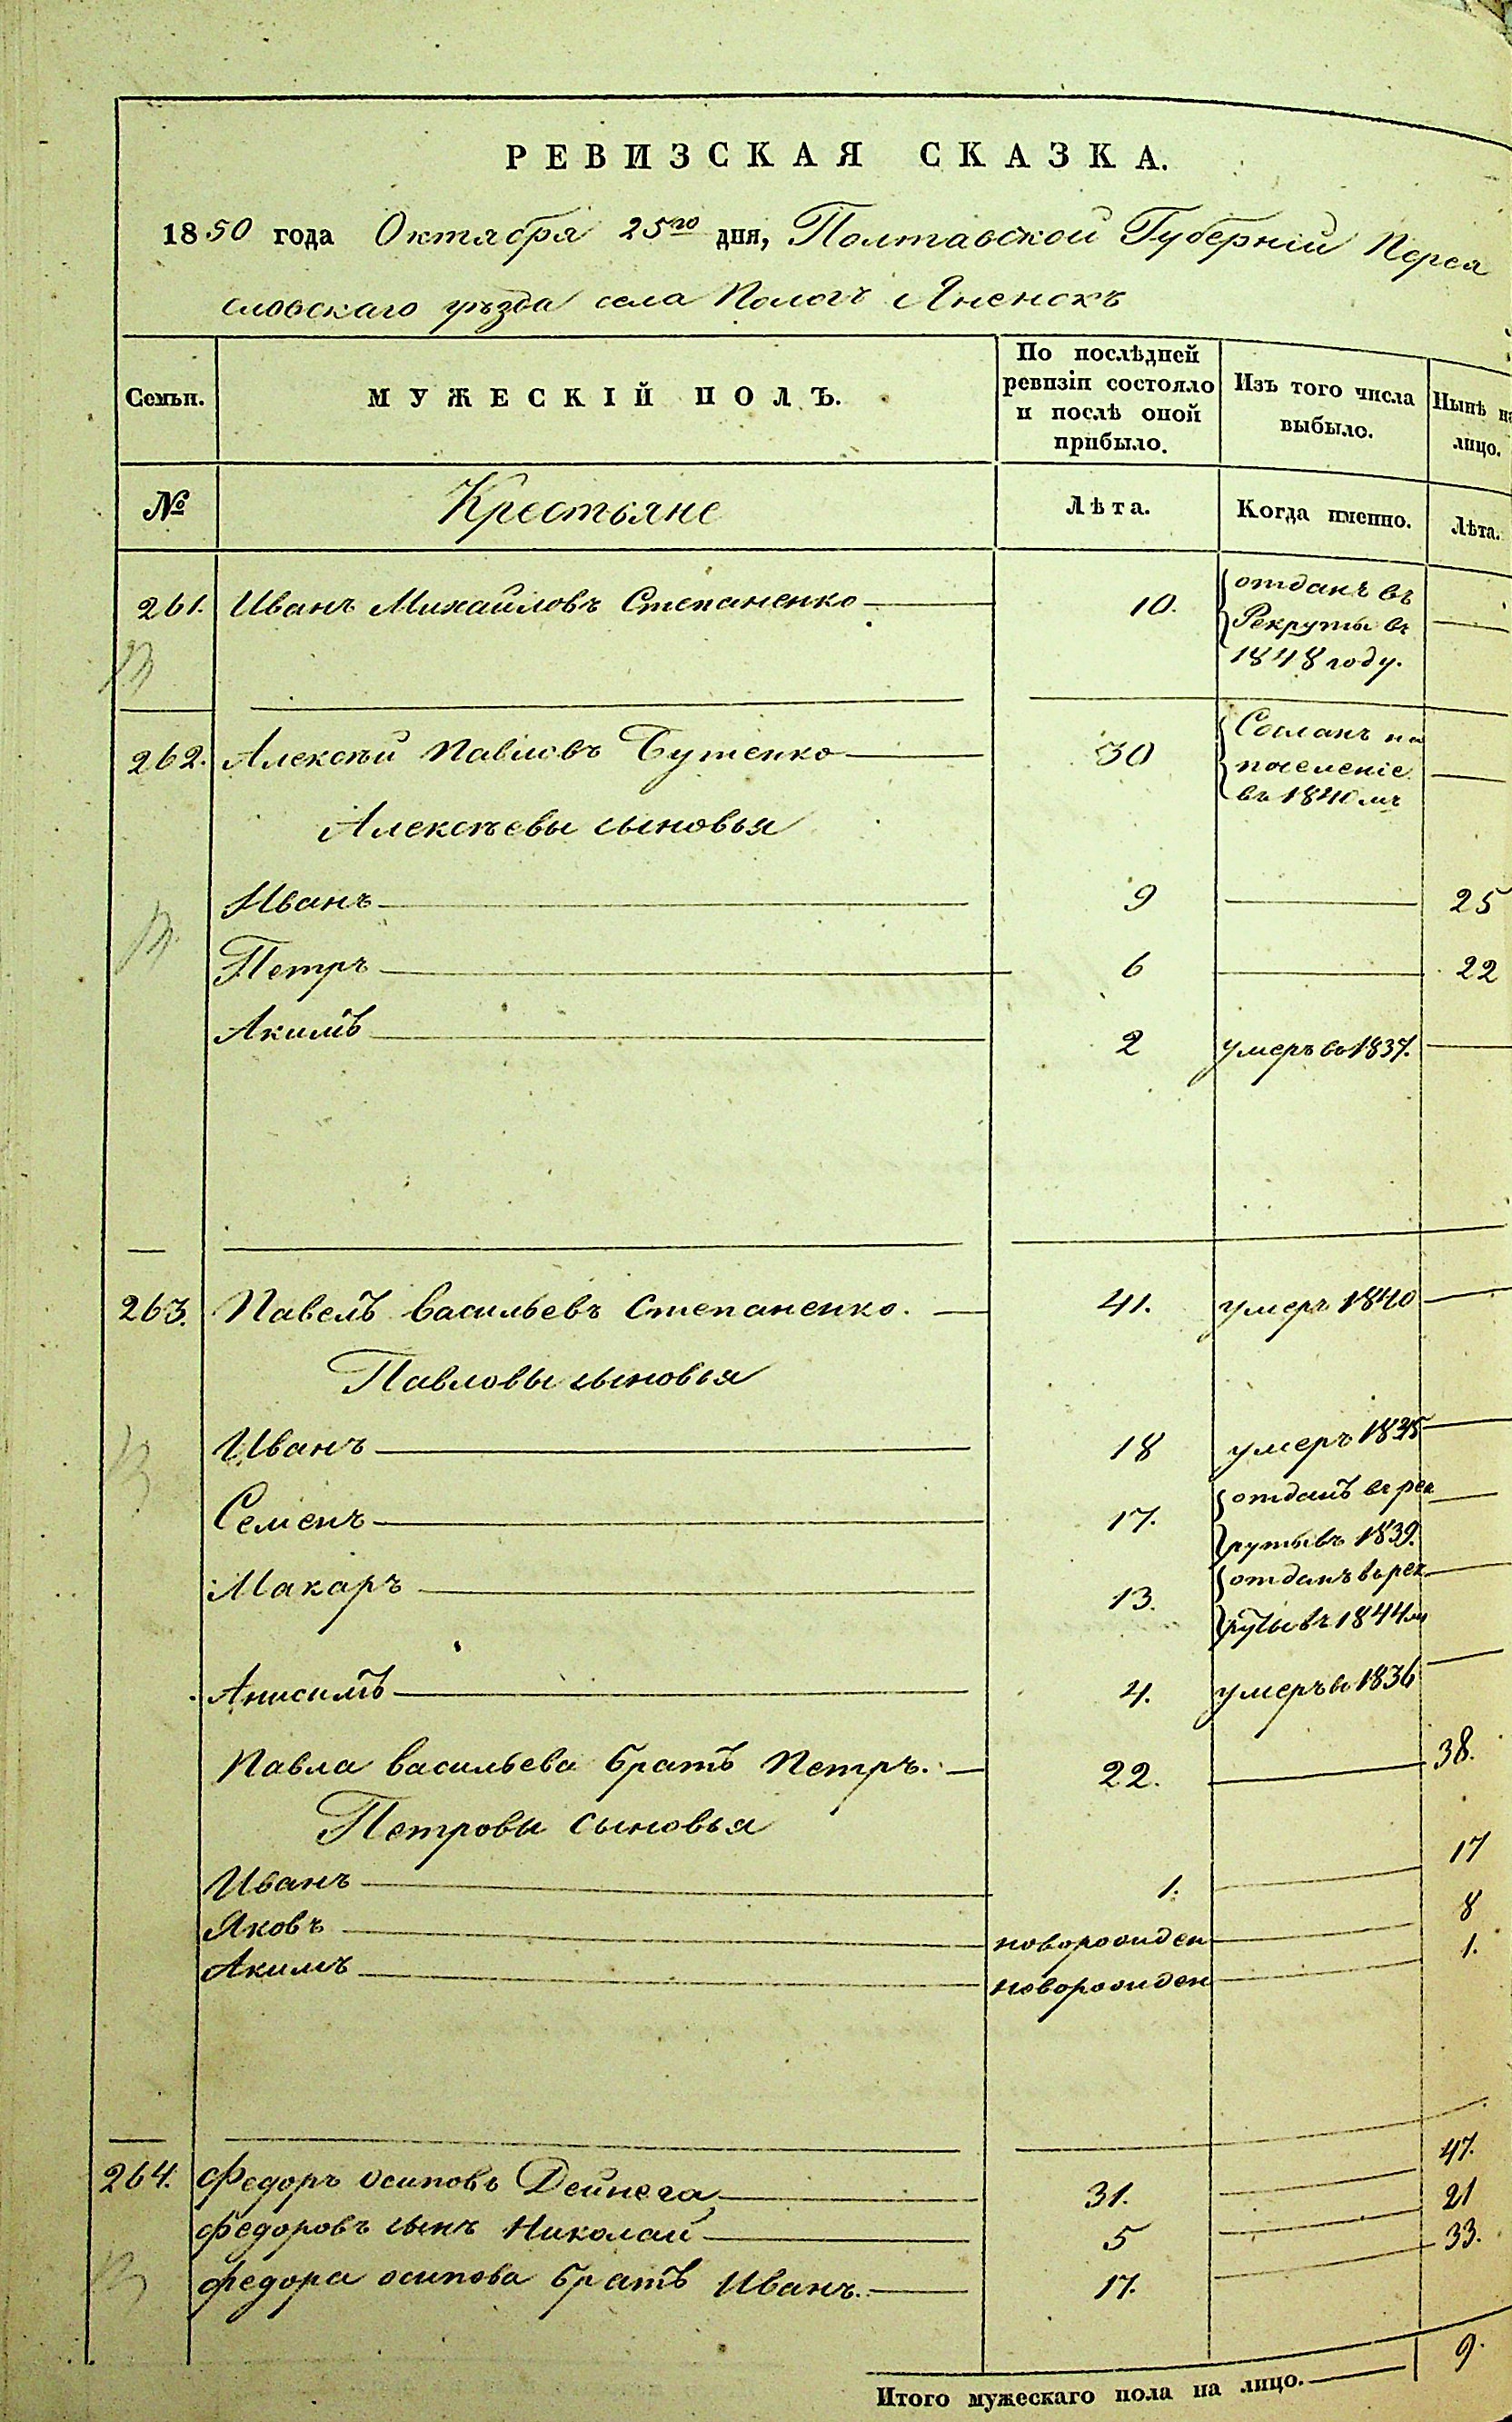 РЕВИЗСКАЯ СКАЗКА.
1850 года Октября 25го дня, Полтавской Губерніи Перея
славскаго уѣзда села Пологъ Яненокъ
Семьи. МУЖЕСКІЙ ПОЛЪ. По послѣдней ревизіи состояло и послѣ оной прибыло. Изъ того числа выбыло. Нынѣ на лицо.
№ Крестьяне Лѣта. Когда именно. Лѣта.
261. Иванъ Михайловъ Степаненко 10. отданъ въ
Рекруты въ
1848 году.
262. Алексѣй Павловъ Бутенко 30 Сосланъ на
поселеніе
въ 1840мъ
Алексѣевы сыновья
Иванъ 9 25
Петръ 6 22
Акимъ 2 умеръ въ 1837.
263. Павелъ Васильевъ Степаненко. 41. умеръ 1840
Павловы сыновья
Иванъ 18 умеръ 1835
Семенъ 17. отданъ въ рек
руты въ 1839.
Макаръ 13. отданъ въ рек
руты въ 1844м
Анисимъ 4. умеръ въ 1836
Павла Васильева братъ Петръ. 22. 38.
Петровы сыновья
Иванъ 1. 17
Яковъ новорожден 8
Акимъ новорожден 1.
264. Федоръ Осиповъ Дейнега 31. 47.
Федоровъ сынъ Николай 5 21
Федора Осипова братъ Иванъ. 17. 33.
Итого мужескаго пола на лицо. 9.